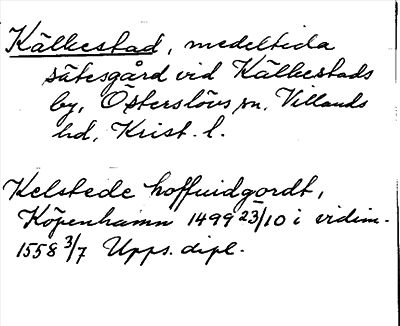 Kälkestad, medeltida
sätesgård vid Kälkestads
by, Österslövs sn, Villands
hd, Krist. l.
Kelstede hoffuidgordt,
Köpenhamn 1499 23/10 i vidim.
1558 3/7 Upps. dipl.